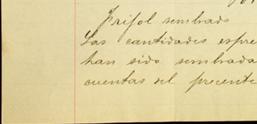 Frifol sembrado
Las cantidades espre
han sido sembrada
cuentas del precente